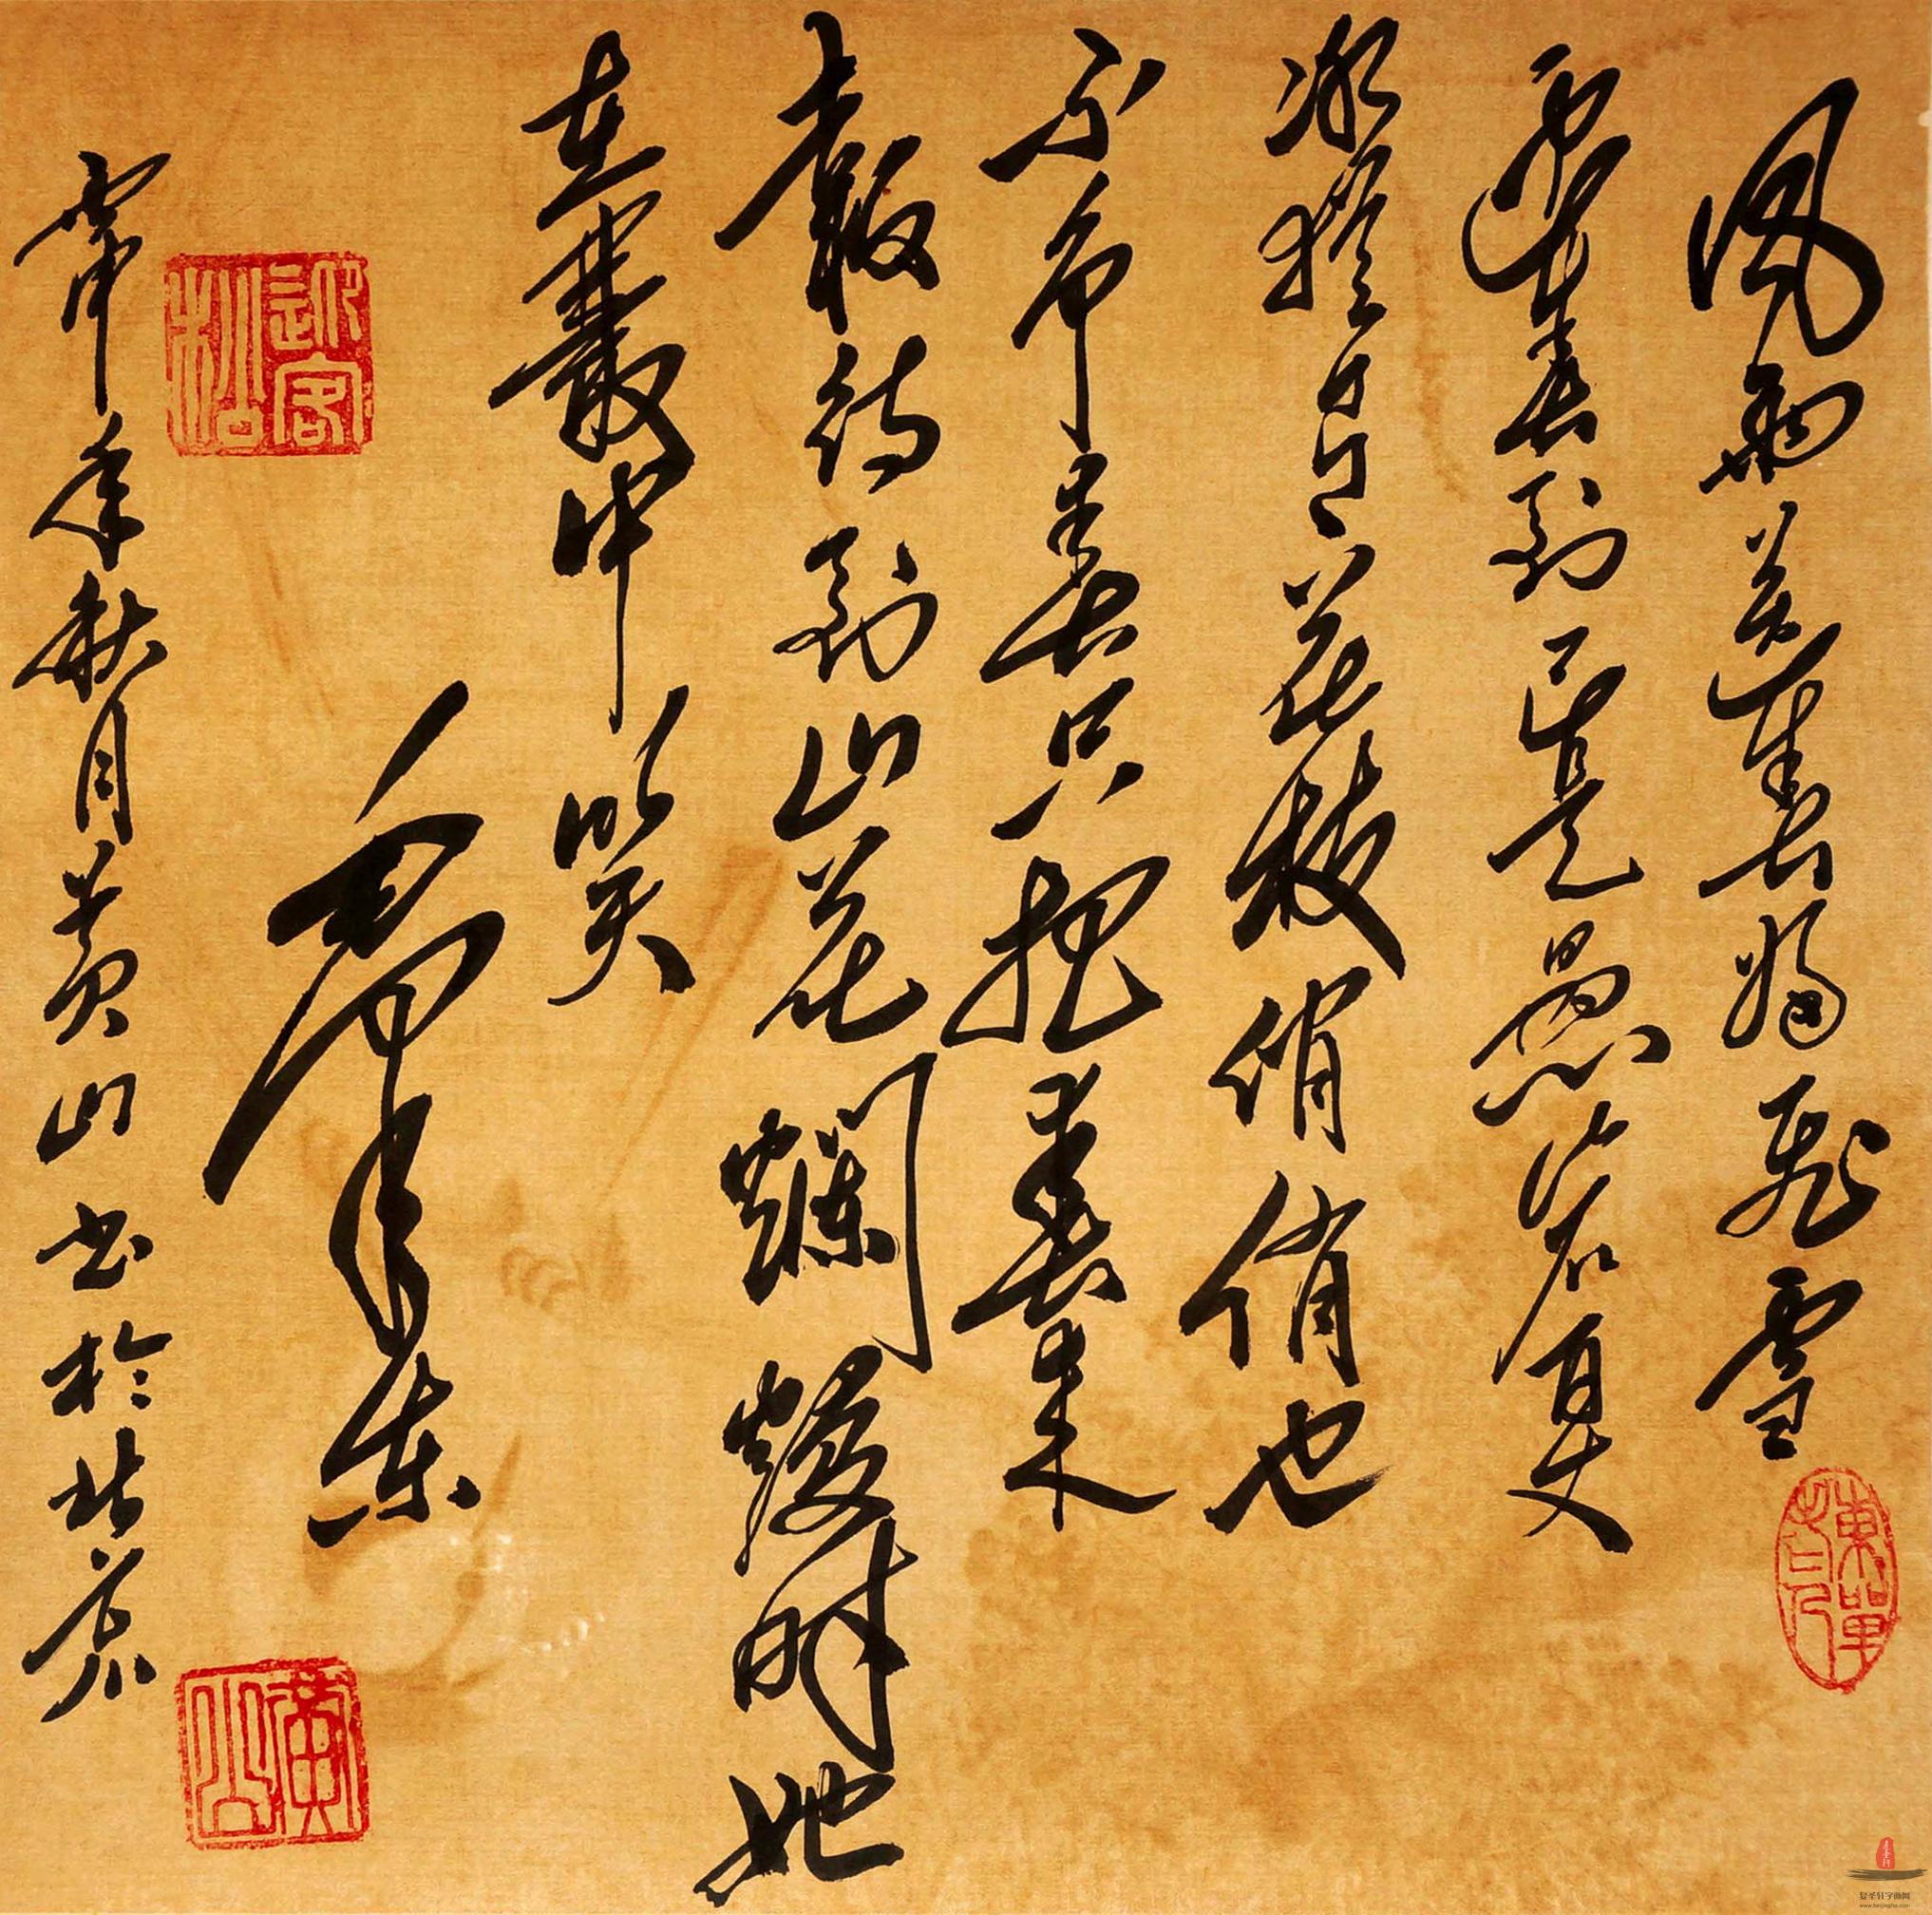 風雨送春歸飛雪
迎春到已是懸崖百丈
冰猶有花枝俏俏也
不爭春只把春來
報待到山花爛熳時她
在叢中笑
毛澤東
申年秋月黄山书於北京
迎客松
黄山